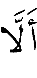 أَلَّا